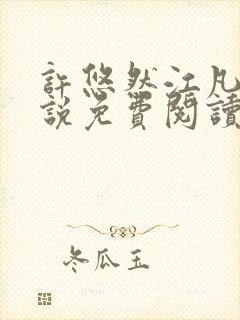 許悠然江凡
說免費閱讀
冬瓜玉